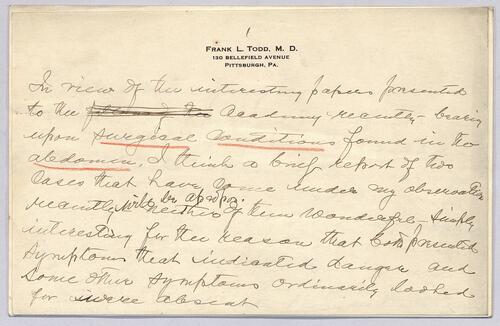 1
FRANK L. TODD, M. D.
130 BELLEFIELD AVENUE
PITTSBURGH, PA.
In view of the interesting papers presented
to the Academy recently - bearing
upon surgical conditions found in the
abdomen, I think a brief report of two
cases that have come under my observation
recently will be apropos. neither of them wonderful - simply
interesting for the reason that both presented
symptoms that indicated danger and
some other symptoms ordinarily looked
for were absent